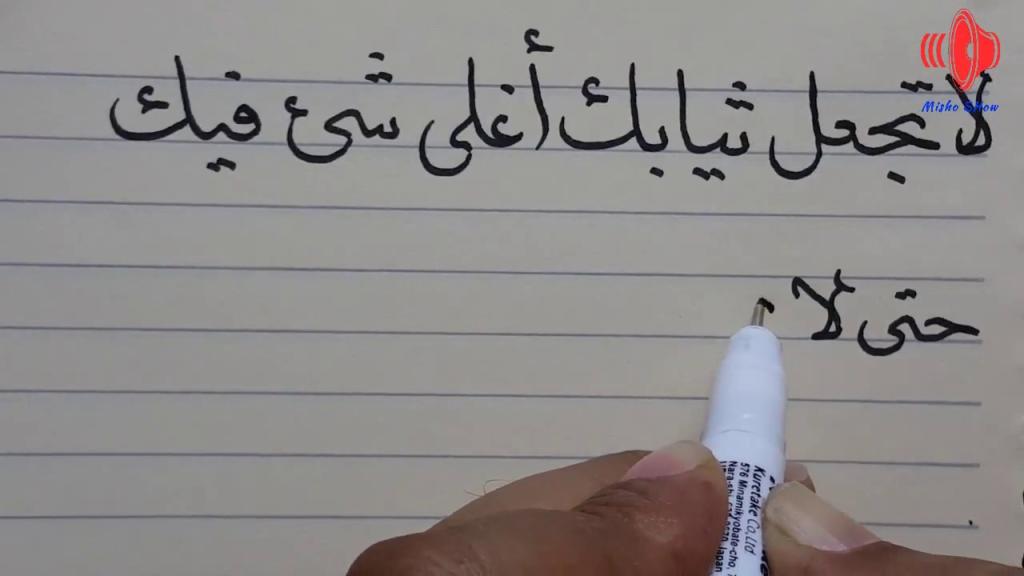 لا تجعل ثيابك أغلى شئ فيك
حتى لا
Misho Show
Kuretake Co,Ltd
576 Minamikyobate-cho,
Japan